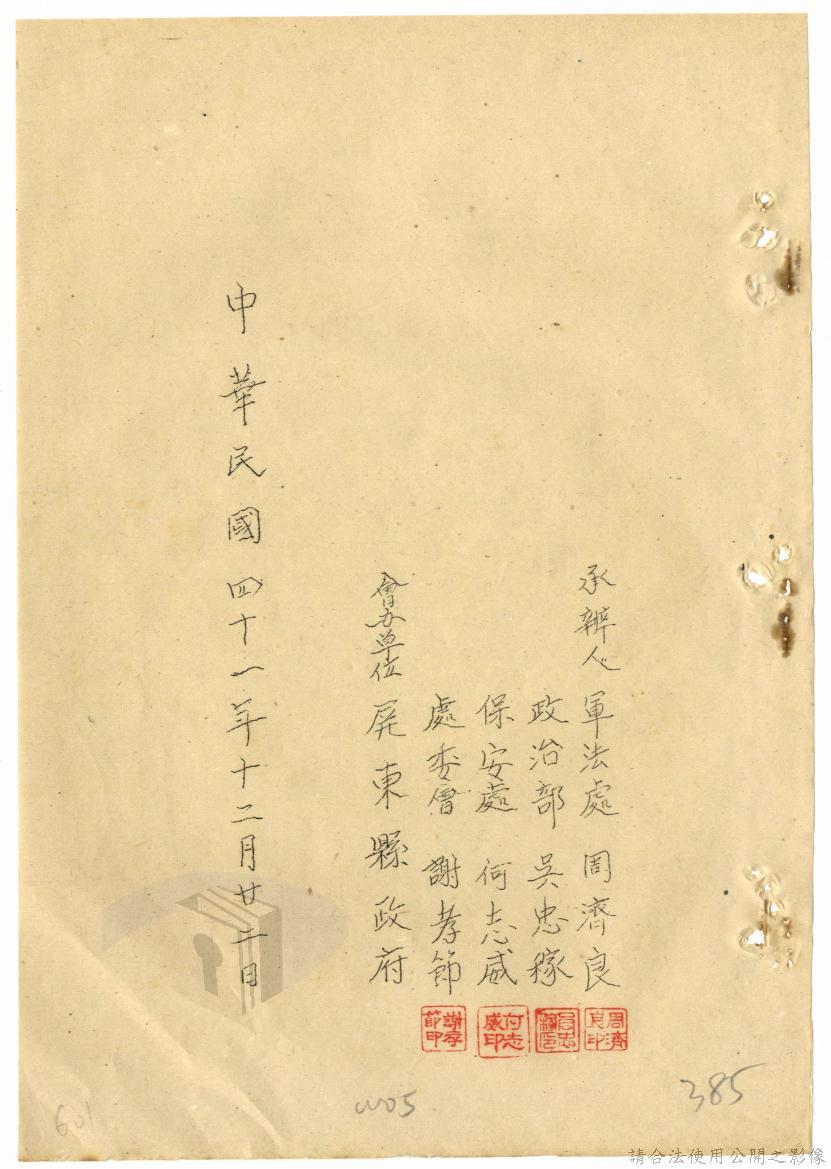 承辦人 軍法處 周濟良
政治部 吳忠稼
保安處 何志威
處委會 謝孝節
會办單位 屏東縣政府
中華民國四十一年十二月廿二日
周濟良印
吳忠稼印
何志威印
謝孝節印
385
601
請合法使用公開之影像